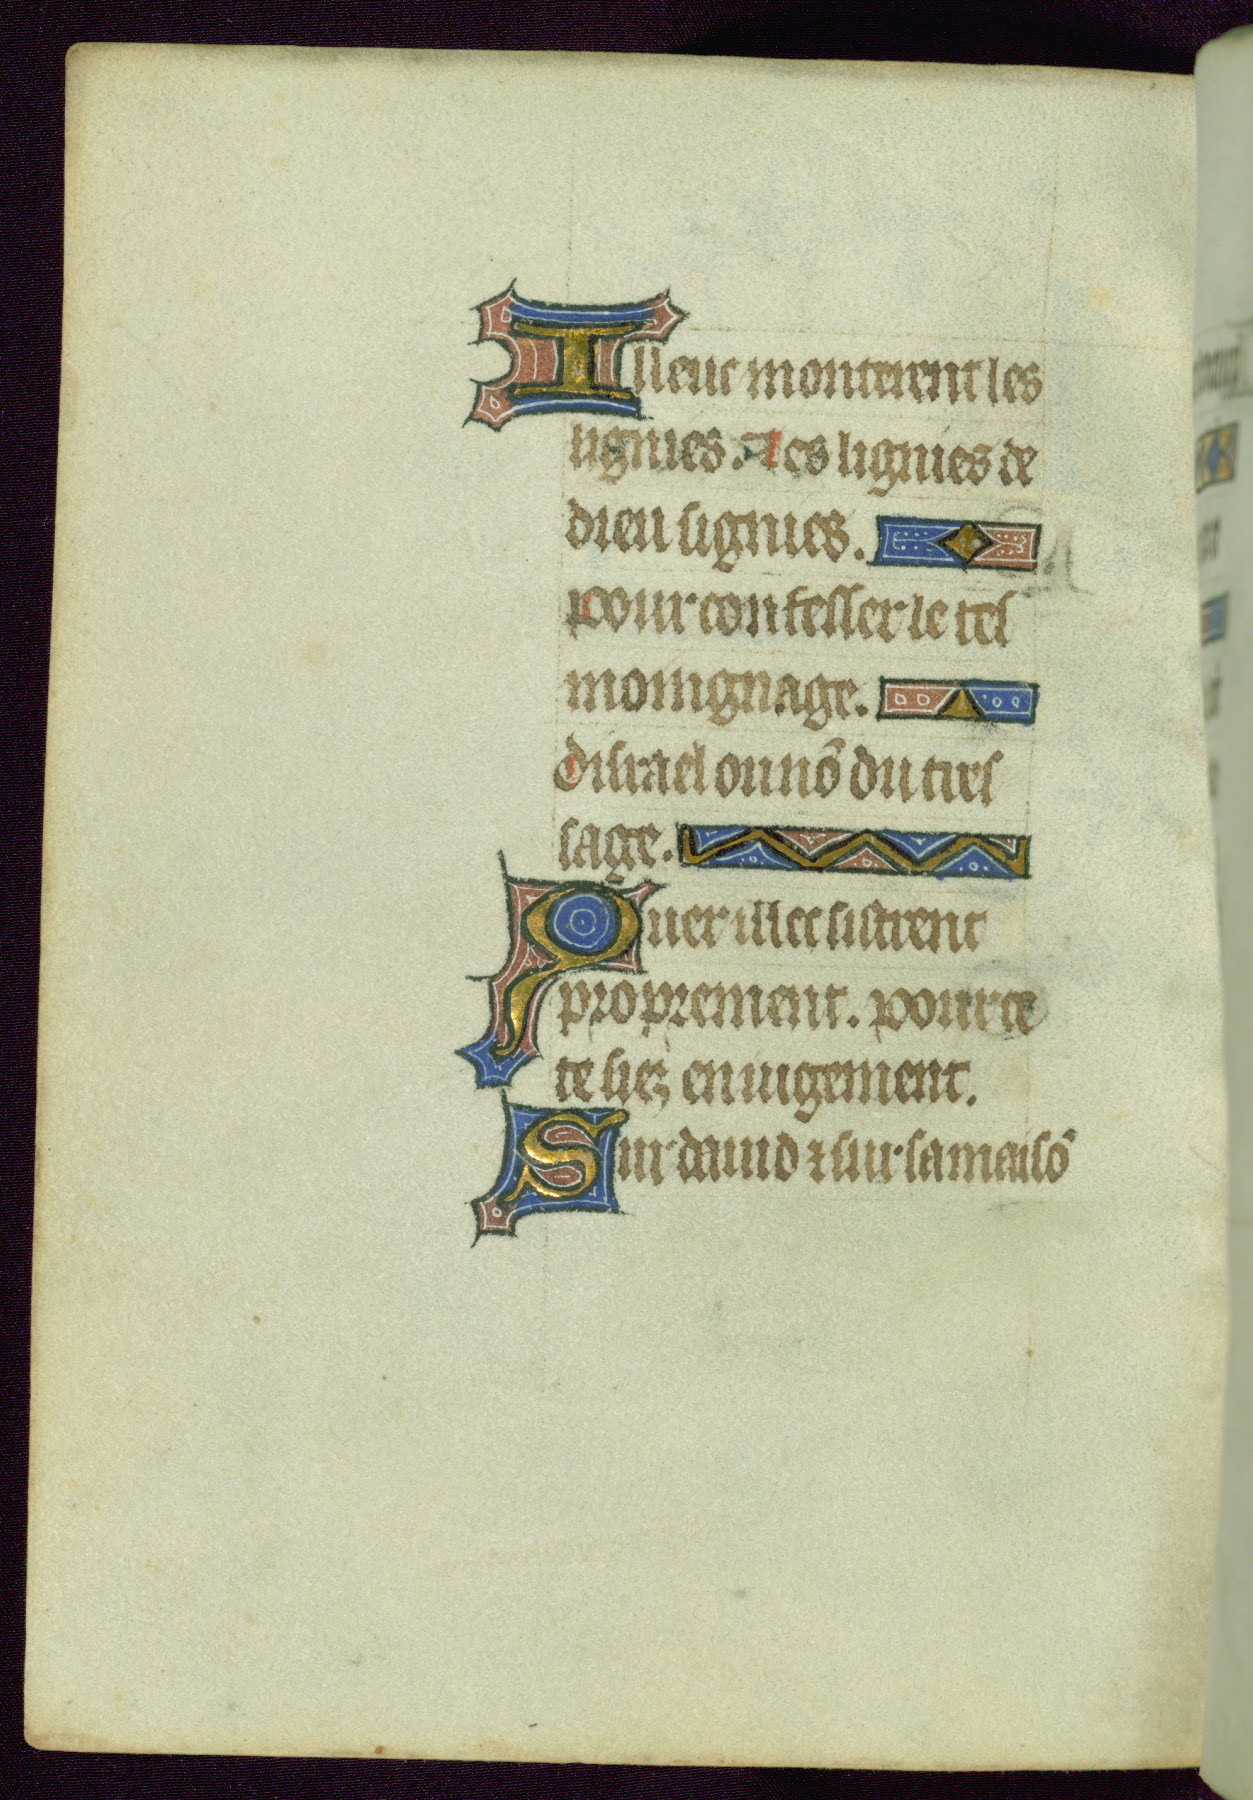 Illeuc monterent les
lignies. les lignies de
dieu signies.
pour confesser le tes
moingnage.
disrael ou nõ du tres
sage.
Quer illec sistrent
proprement. pour ce
te siez en iugement.
Sur dauid ⁊ sur sa maisõ